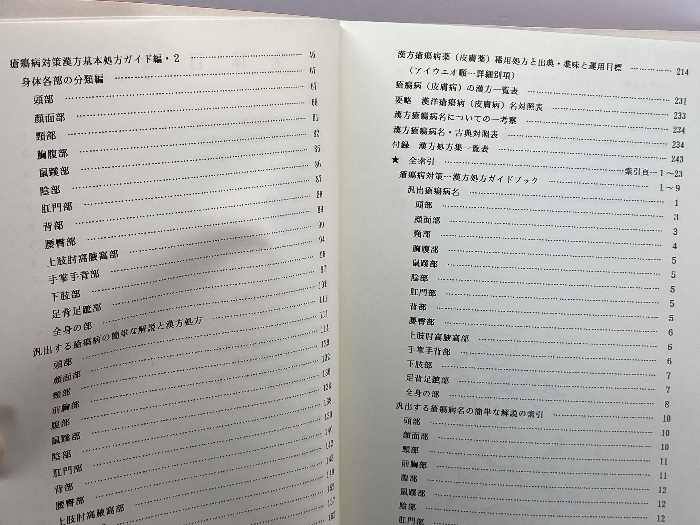 瘡瘍病対策漢方基本処方ガイド編・2
身体各部の分類編
頭部
顔面部
頸部
胸腹部
鼠蹊部
陰部
肛門部
背部
腰臀部
上肢肘高腋窩部
手掌手背部
下肢部
足背足蹠部
全身の部
汎出する瘡瘍病の簡単な解説と漢方処方
頭部
顔面部
頸部
前胸部
腹部
鼠蹊部
陰部
肛門部
背部
腰臀部
上肢肘高腋窩部
漢方瘡瘍病薬(皮膚薬)稀用処方と出典・薬味と運用目標 214
(アイウエオ順…詳細別項)
瘡瘍病(皮膚病)の漢方一覧表 231
要略 漢洋瘡瘍病(皮膚病)名対照表 233
漢方瘡瘍病名についての一考察 234
漢方瘡瘍病名・古典対照表 234
付録 漢方処方集一覧表 243
★ 全索引 索引頁—1〜23
瘡瘍病対策…漢方処方ガイドブック 1〜9
汎出瘡瘍病名 1
頭部 3
顔面部 3
頸部 3
胸腹部 4
鼠蹊部 5
陰部 5
肛門部 5
背部 5
腰臀部 5
上肢肘高腋窩部 6
手掌手背部 6
下肢部 7
足背足蹠部 7
全身の部 8
汎出する瘡瘍病名の簡単な解説の索引 10
頭部 10
顔面部 10
頸部 11
前胸部 11
腹部 11
鼠蹊部 12
陰部 12
肛門部